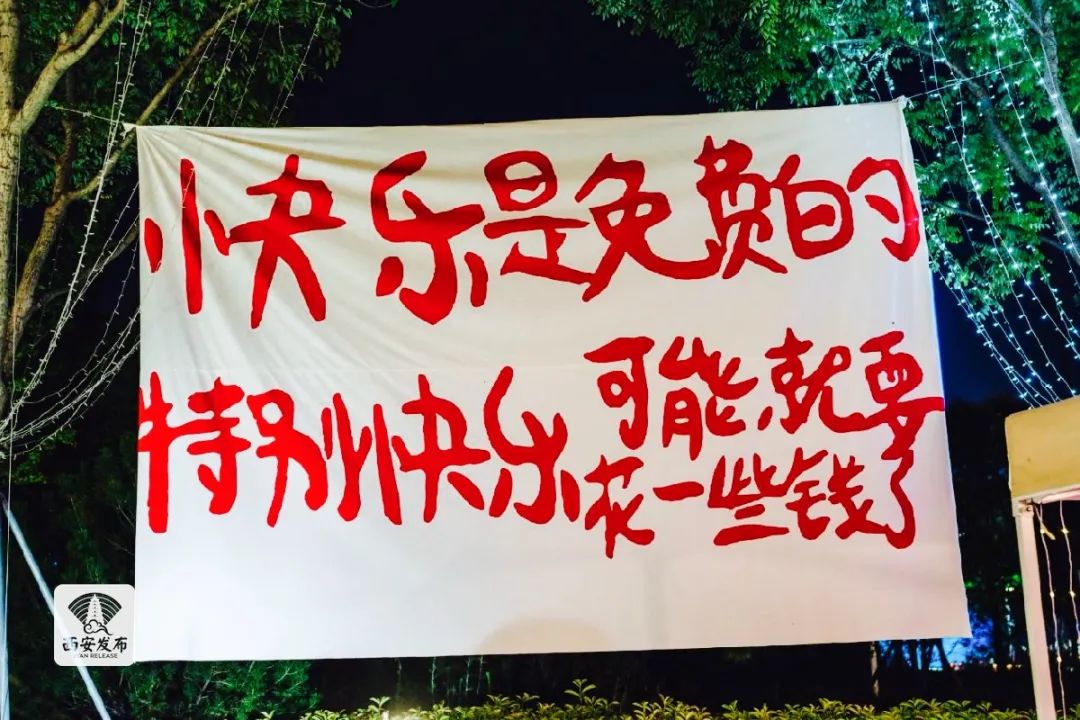 快乐是免费的
特别快乐可能就要
花一些钱了
西安发布
XI'AN RELEASE